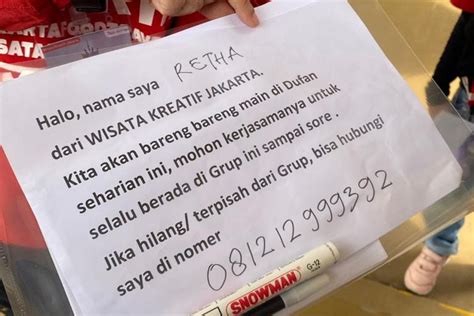 Halo, nama saya RETHA
dari WISATA KREATIF JAKARTA.
Kita akan bareng bareng main di Dufan
seharian ini, mohon kerjasamanya untuk
selalu berada di Grup ini sampai sore .
Jika hilang/ terpisah dari Grup, bisa hubungi
saya di nomer 081212999392
SNOWMAN G-12